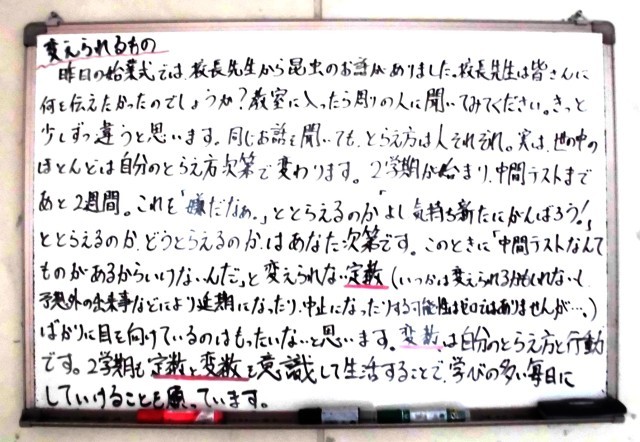 変えられるもの
昨日の始業式では、校長先生から昆虫のお話がありました。校長先生は皆さんに
何を伝えたかったのでしょうか?教室に入ったら周りの人に聞いてみてください。きっと
少しずつ違うと思います。同じお話を聞いても、とらえ方は人それぞれ。実は、世の中の
ほとんどは自分のとらえ方次第で変わります。2学期が始まり、中間テストまで
あと2週間。これを「嫌だなぁ。」ととらえるのか「よし気持ち新たにがんばろう!」
ととらえるのか、どうとらえるのかはあなた次第です。このときに「中間テストなんて
ものがあるからいけないんだ」と変えられない定数(いつかは変えられるかもしれないし、
予想外の出来事などにより延期になったり、中止になったりする可能性はゼロではありませんが…。)
ばかりに目を向けているのはもったいないと思います。変数は自分のとらえ方と行動
です。2学期も定数と変数を意識して生活することで、学びの多い毎日に
していけることを願っています。